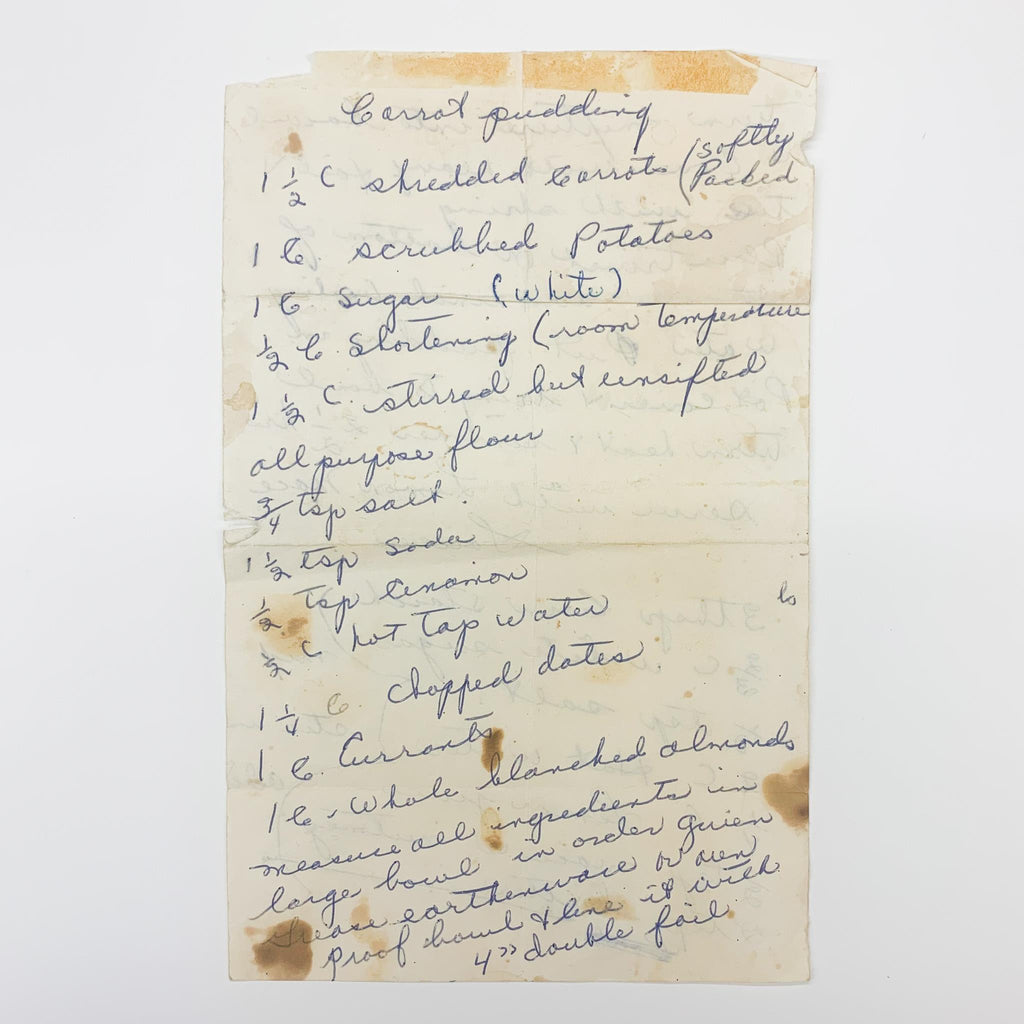 Carrot pudding
1 1/2 C shredded Carrots (softly Packed
1 C. scrubbed Potatoes
1 C Sugar (white)
1/2 C. Shortening (room Temperature
1 1/2 C. stirred but unsifted
all purpose flour
3/4 tsp salt.
1 1/2 tsp soda
1/2 tsp Cinamon
1/2 C hot Tap water
1 1/4 C. chopped dates
1 C. Currants
1 C. Whole blanched almonds
measure all ingredients in
large bowl in order given
Grease earthenware or oven
Proof bowl & line it with
4" double foil